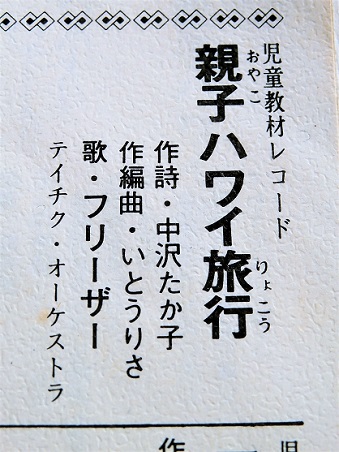 児童教材レコード
親子ハワイ旅行
おやこ
りょこう
作詩・中沢たか子
作編曲・いとうりさ
歌・フリーザー
テイチク・オーケストラ
児
一
作